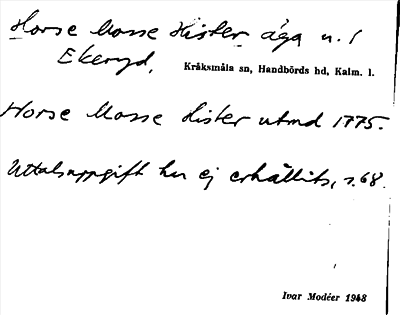 Horse Mosse Hister äga n. 1
Ekeryd,
Kråksmåla sn, Handbörds hd, Kalm. l.
Horse Mosse Hister utmd 1775.
Uttalsuppgift har ej erhållits, s. 68.
Ivar Modéer 1948